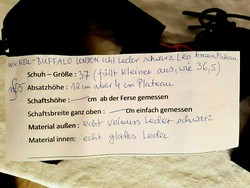 wie NEU-BUFFALO LONDON echt Leder schwarz Leo innen Plateau
Schuh – Größe : 37 (fällt kleiner aus, wie 36,5)
Absatzhöhe : 12 cm über 4 cm Plateau
Schaftshöhe : cm ab der Ferse gemessen
Schaftsbreite ganz oben : cm einfach gemessen
Material außen : echt velours Leder schwarz
Material innen: echt glattes Leder